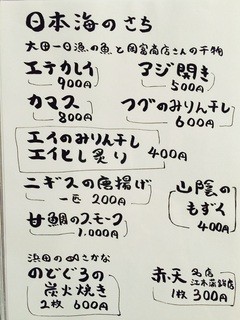 日本海のさち
大田一日漁の魚と岡富商店さんの干物
エテカレイ
900円
アジ開き
500円
カマス
800円
フグのみりん干し
600円
エイのみりん干し
エイヒレ炙り
400円
ニギスの唐揚げ
一匹 200円
山陰の
もずく
400円
甘鯛のスモーク
1,000円
浜田のさかな
のどぐろの
炭火焼き
2枚 600円
赤天
名店
江木蒲鉾店
1枚 300円